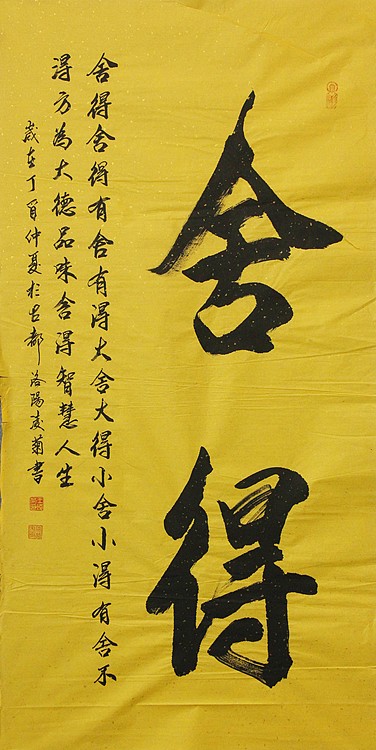 舍得
舍得舍得有舍有得大舍大得小舍小得有舍不
得方為大德品味舍得智慧人生
歲在丁酉仲夏於古都洛陽菊書